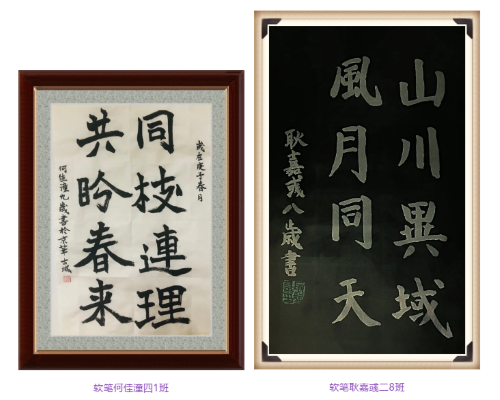 歲在庚子春月
同枝連理
共盼春来
何佳潼九歲書於京華古城
软笔何佳潼四1班
山川異域
風月同天
耿嘉彧八歲書
软笔耿嘉彧二8班